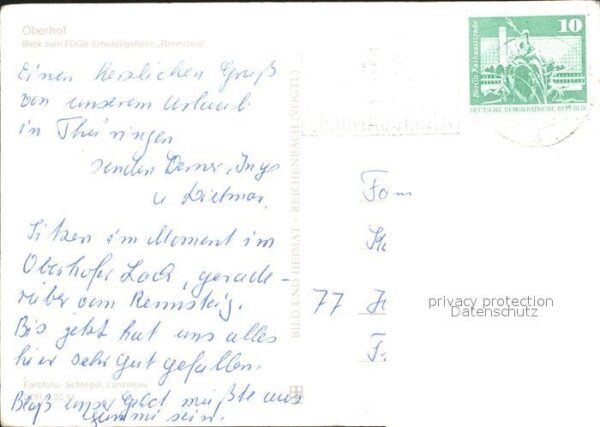 Oberhof
Blick zum FDGB-Erholungsheim „Rennsteig"
Einen herzlichen Gruß
von unserem Urlaub
in Thüringen
senden Werner, Inge
u. Dietmar.
Sitzen im Moment im
Oberhofer Loch, gerade-
rüber vom Rennsteig.
Bis jetzt hat uns alles
hier sehr gut gefallen.
Farbfoto: Schlegel, Lunzenau
Bloß unser Geld müßte aus
Gummi sein.
BILD UND HEIMAT · REICHENBACH
10
Berlin-Rathausstraße
DEUTSCHE DEMOKRATISCHE REPUBLIK
Fam
77
privacy protection
Datenschutz